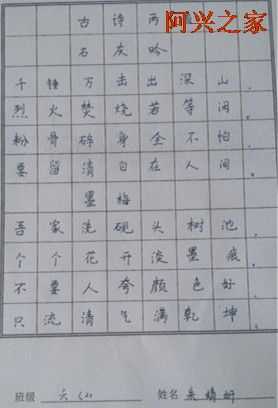 阿兴之家
古诗两
石灰吟
千锤万击出深山，
烈火焚烧若等闲。
粉骨碎身全不怕，
要留清白在人间。
墨梅
吾家洗砚头树池，
个个花开淡墨痕。
不要人夸颜色好，
只流清气满乾坤。
班级 六 姓名